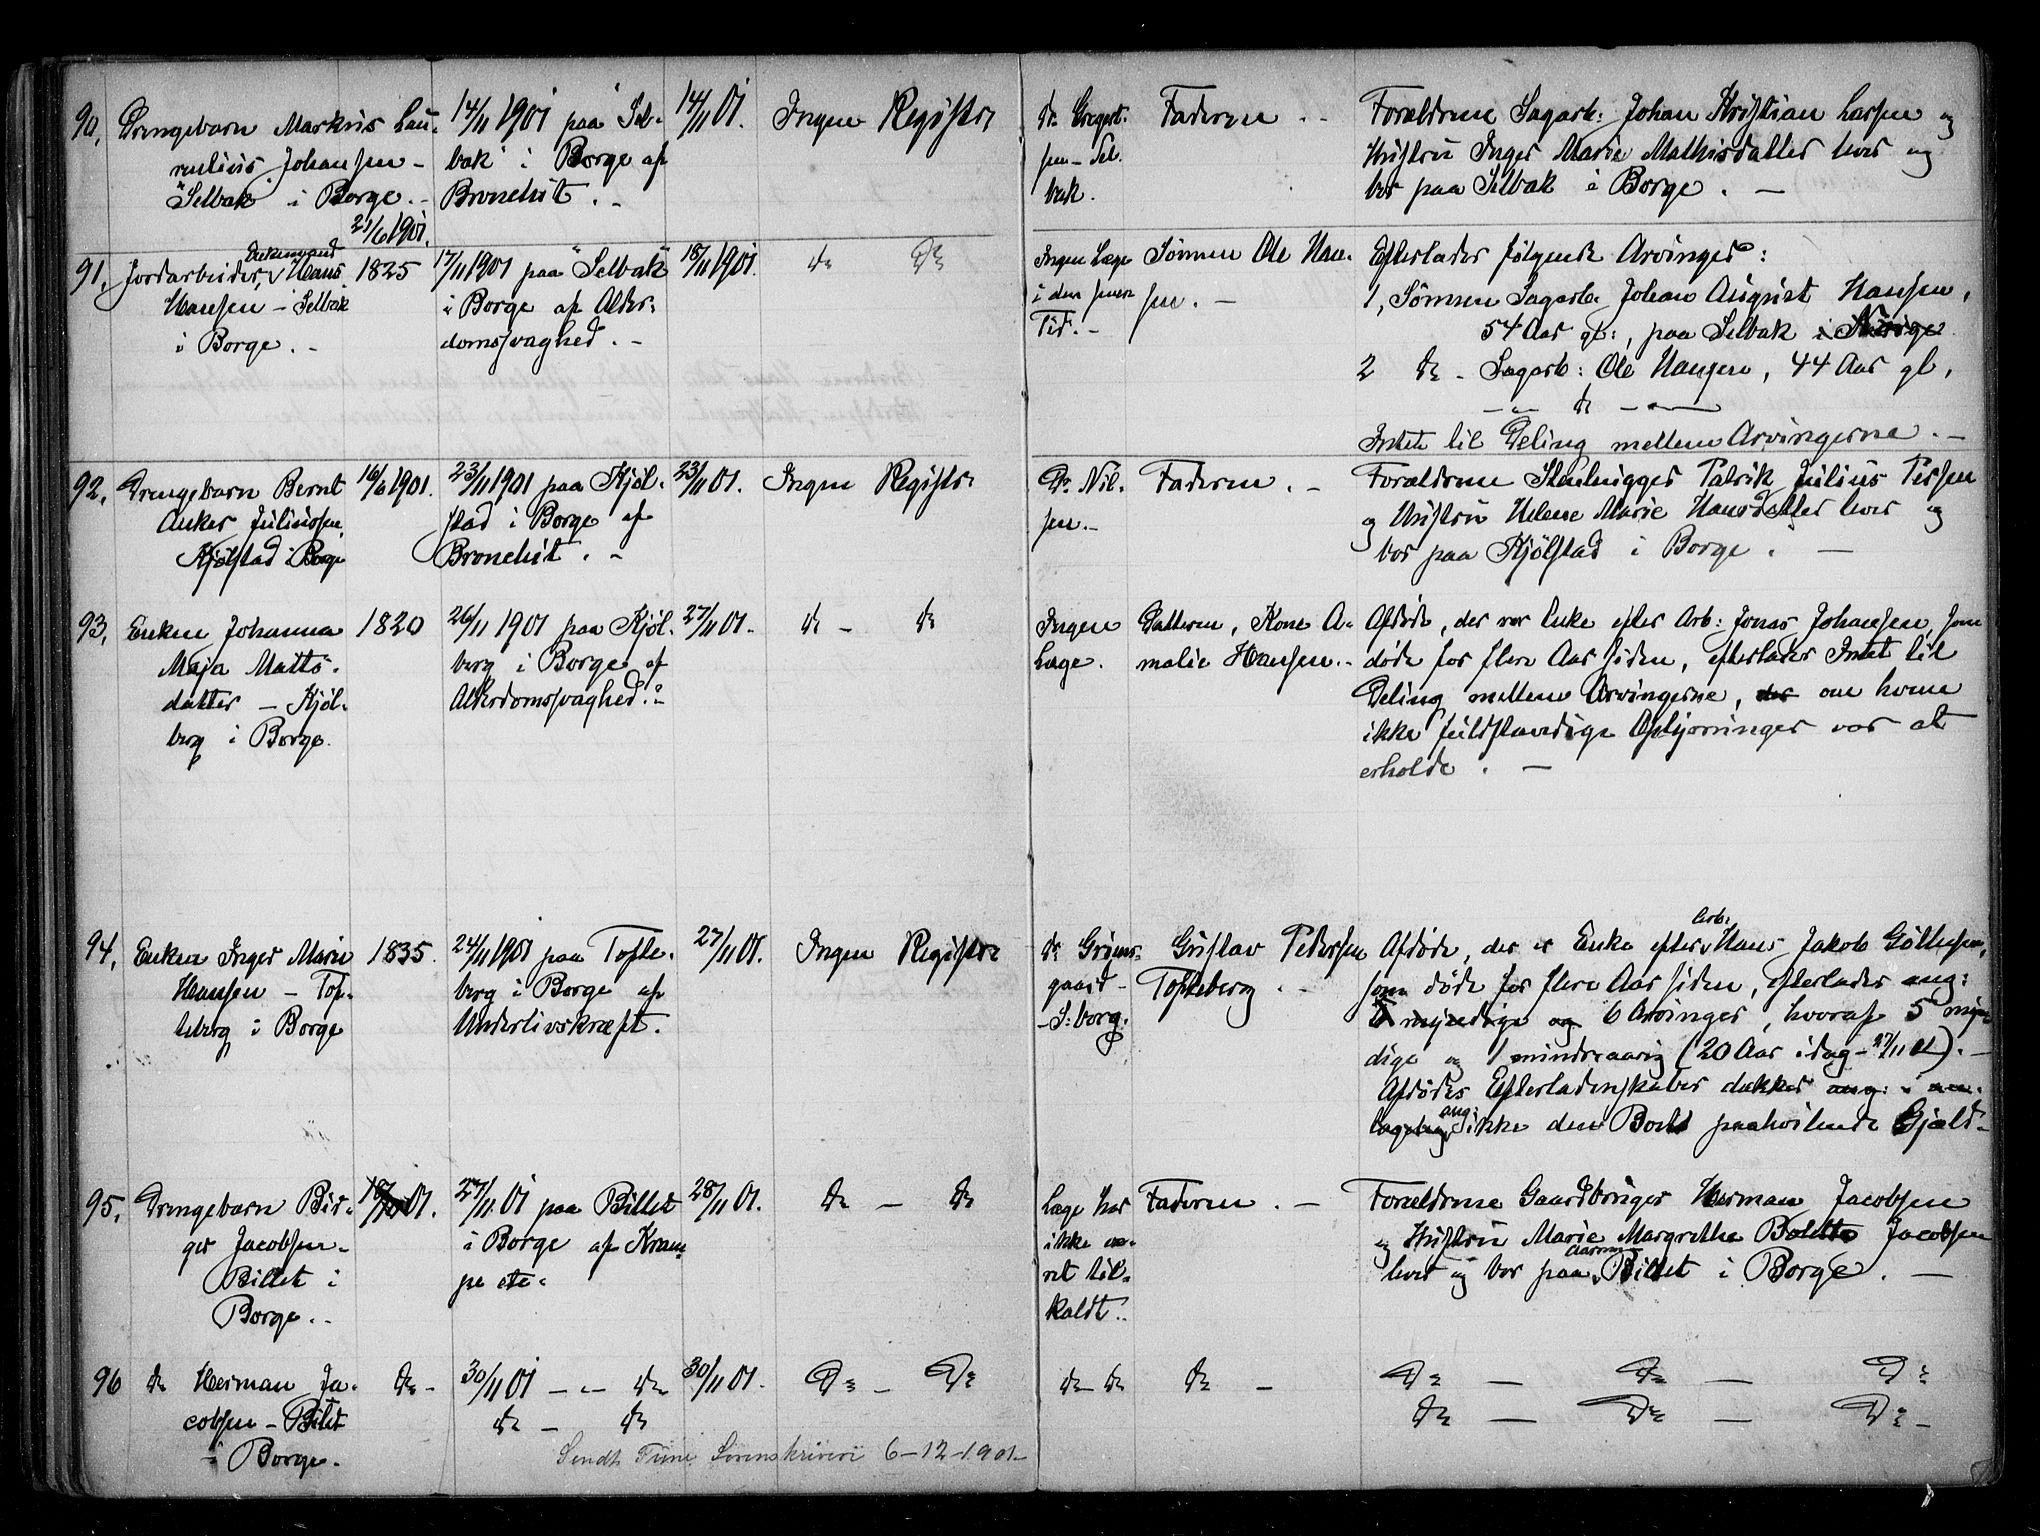 90, Drengebarn Markus Lau-
rentius Johansen -
Selbak i Borge. -
21/6 1901.
14/11 1901 paa Sel-
bak i Borge af
Bronchit. -
14/11 01.
Ingen Registr:
dr. Gregert-
sen - Sel-
bak.
Faderen. -
Forældrene Sagarb: Johan Kristian Larsen og
Hustru Inger Marie Mathisdatter lever og
bor paa Selbak i Borge. -
91, Jordarbeider, Enkemand Hans
Hansen - Selbak
i Borge. -
1825
17/11 1901 paa Selbak
i Borge af Alder-
domssvaghed. -
18/11 1901.
do Do
Ingen Læge
i den senere
Tid. -
Sønnen Ole Han-
sen. -
Efterlader følgende Arvinger:
1, Sønnen Sagarb: Johan August Hansen,
54 Aar gl:, paa Selbak i Borge
2 do - Sagarb: Ole Hansen, 44 Aar gl,
- " do - " -
Intet til Deling mellem Arvingerne. -
92, Drengebarn Bernt
Anker Juliussen
Kjølstad i Borge
16/6 1901.
23/11 1901 paa Kjøl-
stad i Borge af
Bronchit. -
23/11 01.
Ingen Registr:
Dr. Nil-
sen. -
Faderen. -
Forældrene Stenhugger Patrik Julius Persen
og Hustru Helene Marie Hansdatter lever og
bor paa Kjølstad i Borge. -
93, Enken Johanna
Maja Matts-
datter - Kjøl-
berg i Borge.
1820
26/11 1901 paa Kjøl-
berg i Borge af
Alderdomssvaghed. -
27/11 01.
do - do
Ingen
Læge.
Datteren, Kone A-
malie Hansen. -
Afdøde, der var Enke efter Arb: Jonas Johansen, som
døde for flere Aar siden, efterlader Intet til
Deling mellem Arvingerne, der om hvem
ikke fuldstændige Oplysninger var at
erholde. -
94, Enken Inger Marie
Hansen - Tof-
teberg i Borge
1835.
24/11 1901 paa Tofte-
berg i Borge af
Underlivskræft.
27/11 01.
Ingen Registr:
dr Grims-
gaard -
S:borg.
Gustav Pedersen
Tofteberg. -
Afdøde, der er Enke efter Arb: Hans Jakob
som døde for flere Aar siden, efterlader ang:
myndige og 6 Arvinger, hvoraf 5 myn-
dige og 1 mindreaarig (20 Aar idag - 27/11 01). -
Afdødes Efterladenskaber dækker ang:
ang: ikke den Boets paahvilende Gjæld. -
95, Drengebarn Bir-
ger Jacobsen -
Billet i
Borge. -
18/ 01.
27/11 01 paa Billet
i Borge af Kram-
pe etc.
28/11 01.
do - do
Læge har
ikke væ-
ret til-
kaldt. -
Faderen. -
Forældrene Gaardbruger Herman Jacobsen
og Hustru Marie Margrethe Bolette Jacobsen
lever og bor paa Billet i Borge. -
96 do Herman Ja-
cobsen - Bilet
i Borge.
do -
30/11 01 - " - do
do - do
30/11 01.
Do - Do
do - do
do -
Do - Do - Do
Do - Do - Do -
Sendt Tune Sorenskriveri 6-12-1901